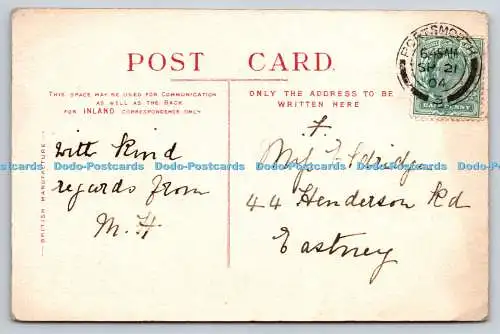 POST CARD.
THIS SPACE MAY BE USED FOR COMMUNICATION
AS WELL AS THE BACK
FOR INLAND CORRESPONDENCE ONLY
ONLY THE ADDRESS TO BE
WRITTEN HERE
BRITISH MANUFACTURE
with kind
regards from
M. H
44 Henderson Rd
Eastney
PORTSMOUTH
21
04
HALFPENNY
Dodo-Postcards Dodo-Postcards Dodo-Postcards Dodo-Postcards